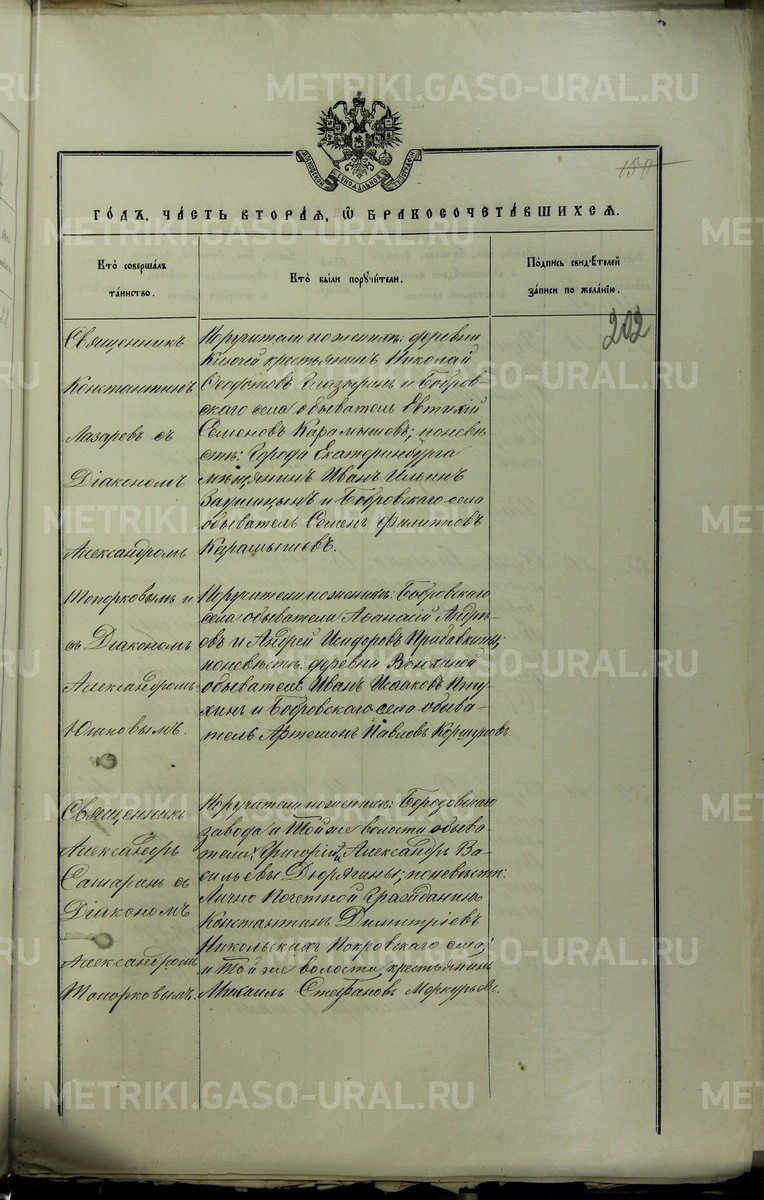 METRIKI.GASO-URAL.RU
МОСКОВСКОЙ СѴНОДАЛЬНОЙ ТѴПОГРАФІИ
150
ГО́ДЪ, ЧА́СТЬ ВТОРА́Я, Ѡ҆ БРАКОСОЧЕТА́ВШИХСЯ.
Кто̀ соверша́лъ
та́инство.
Кто̀ бы́ли порꙋчи́тели.
По́дпись свидѣ́телей
за́писи по жела́нїю.
202
Священникъ
Константинъ
Лазаревъ съ
Діакономъ
Александромъ
Топорковымъ и
съ Діакономъ
Александромъ
Юшковымъ.
Поручители по женихѣ: деревни
Ключей крестьянинъ Николай
Федотовъ Глазыринъ и Бобров-
скаго села обыватель Евтихій
Семеновъ Карамышевъ; по невѣ-
стѣ: Города Екатеринбурга
мѣщанинъ Иванъ Ильинъ
и Бобровскаго села
обыватель Семенъ Филиповъ
Карамышевъ.
Поручители по женихѣ: Бобровскаго
села обыватели Аѳанасій Андре-
овъ и Андрей Исидоровъ Прибавкины;
по невѣстѣ: деревни
обыватель Иванъ Исааковъ Пету-
хинъ и Бобровскаго села обыва-
тель Артемонъ Павловъ Коршуновъ
Священникъ
Александръ
Сатаринъ съ
Діакономъ
Александромъ
Топорковымъ.
Поручители по женихѣ:
завода и Той же волости обыва-
тели: Григорій и Александръ Ва-
сильевы Дюрягины; по невѣстѣ:
Лично Почетной Гражданинъ
Константинъ Димитріевъ
Никольскихъ Покровскаго села;
и Той же волости, крестьянинъ
Михаилъ Стефановъ Меркурьевъ.